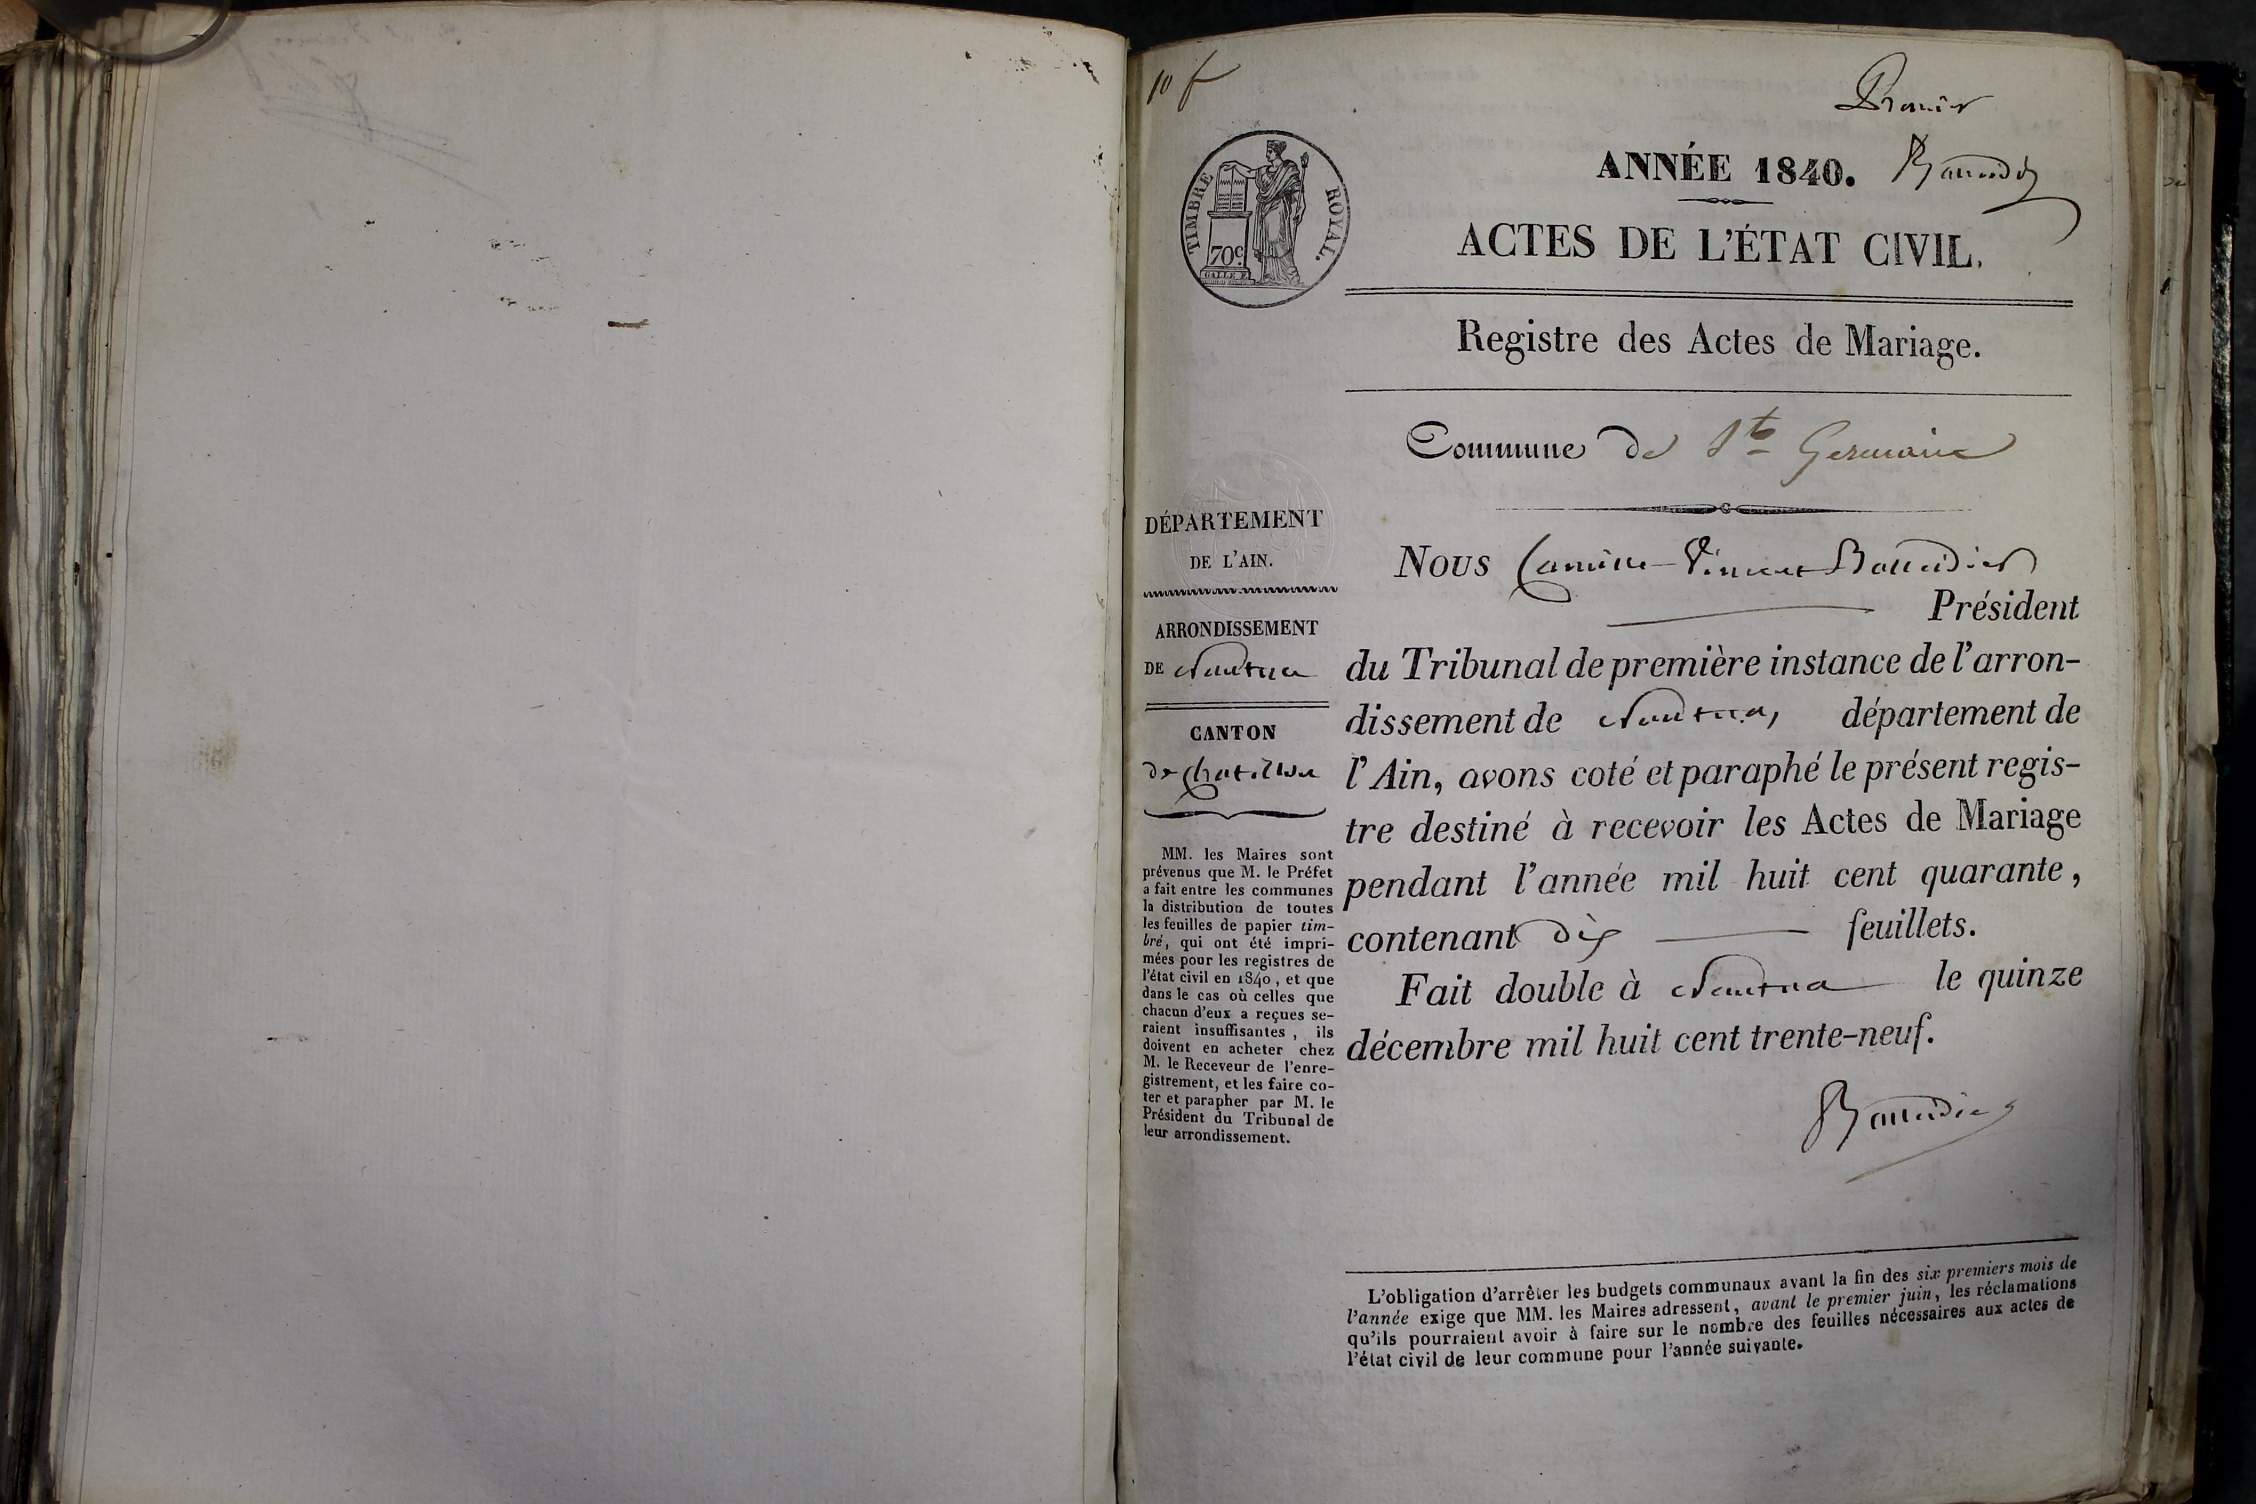 10 f
Premier
ANNÉE 1840.
TIMBRE ROYAL.
70c.
ACTES DE L'ÉTAT CIVIL.
Registre des Actes de Mariage.
Commune de St Germain
DÉPARTEMENT
DE L'AIN.
ARRONDISSEMENT
DE Nantua
CANTON
de Chatillon
MM. les Maires sont
prévenus que M. le Préfet
a fait entre les communes
la distribution de toutes
les feuilles de papier tim-
bré, qui ont été impri-
mées pour les registres de
l'état civil en 1840, et que
dans le cas où celles que
chacun d'eux a reçues se-
raient insuffisantes, ils
doivent en acheter chez
M. le Receveur de l'enre-
gistrement, et les faire co-
ter et parapher par M. le
Président du Tribunal de
leur arrondissement.
Nous Camille-Vincent
Président
du Tribunal de première instance de l'arron-
dissement de Nantua, département de
l'Ain, avons coté et paraphé le présent regis-
tre destiné à recevoir les Actes de Mariage
pendant l'année mil huit cent quarante,
contenant dix feuillets.
Fait double à Nantua le quinze
décembre mil huit cent trente-neuf.
L'obligation d'arrêter les budgets communaux avant la fin des six premiers mois de
l'année exige que MM. les Maires adressent, avant le premier juin, les réclamations
qu'ils pourraient avoir à faire sur le nombre des feuilles nécessaires aux actes de
l'état civil de leur commune pour l'année suivante.